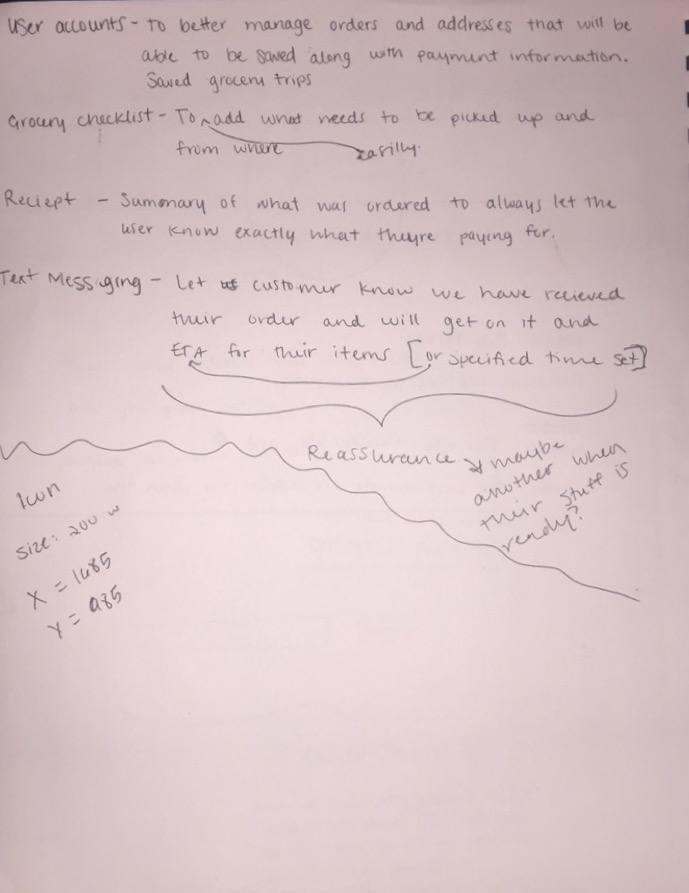 User accounts - to better manage orders and addresses that will be
able to be saved along with payment information.
Saved grocery trips
Grocery checklist - To add what needs to be picked up and
from where easilly.
Reciept - Summary of what was ordered to always let the
user know exactly what theyre paying for.
Text Messaging - Let customer know we have recieved
their order and will get on it and
ETA for their items [or specified time set]
Reassurance
maybe
another when
their stuff is
ready?
Icon
size: 200 w
X = 1685
Y = 985